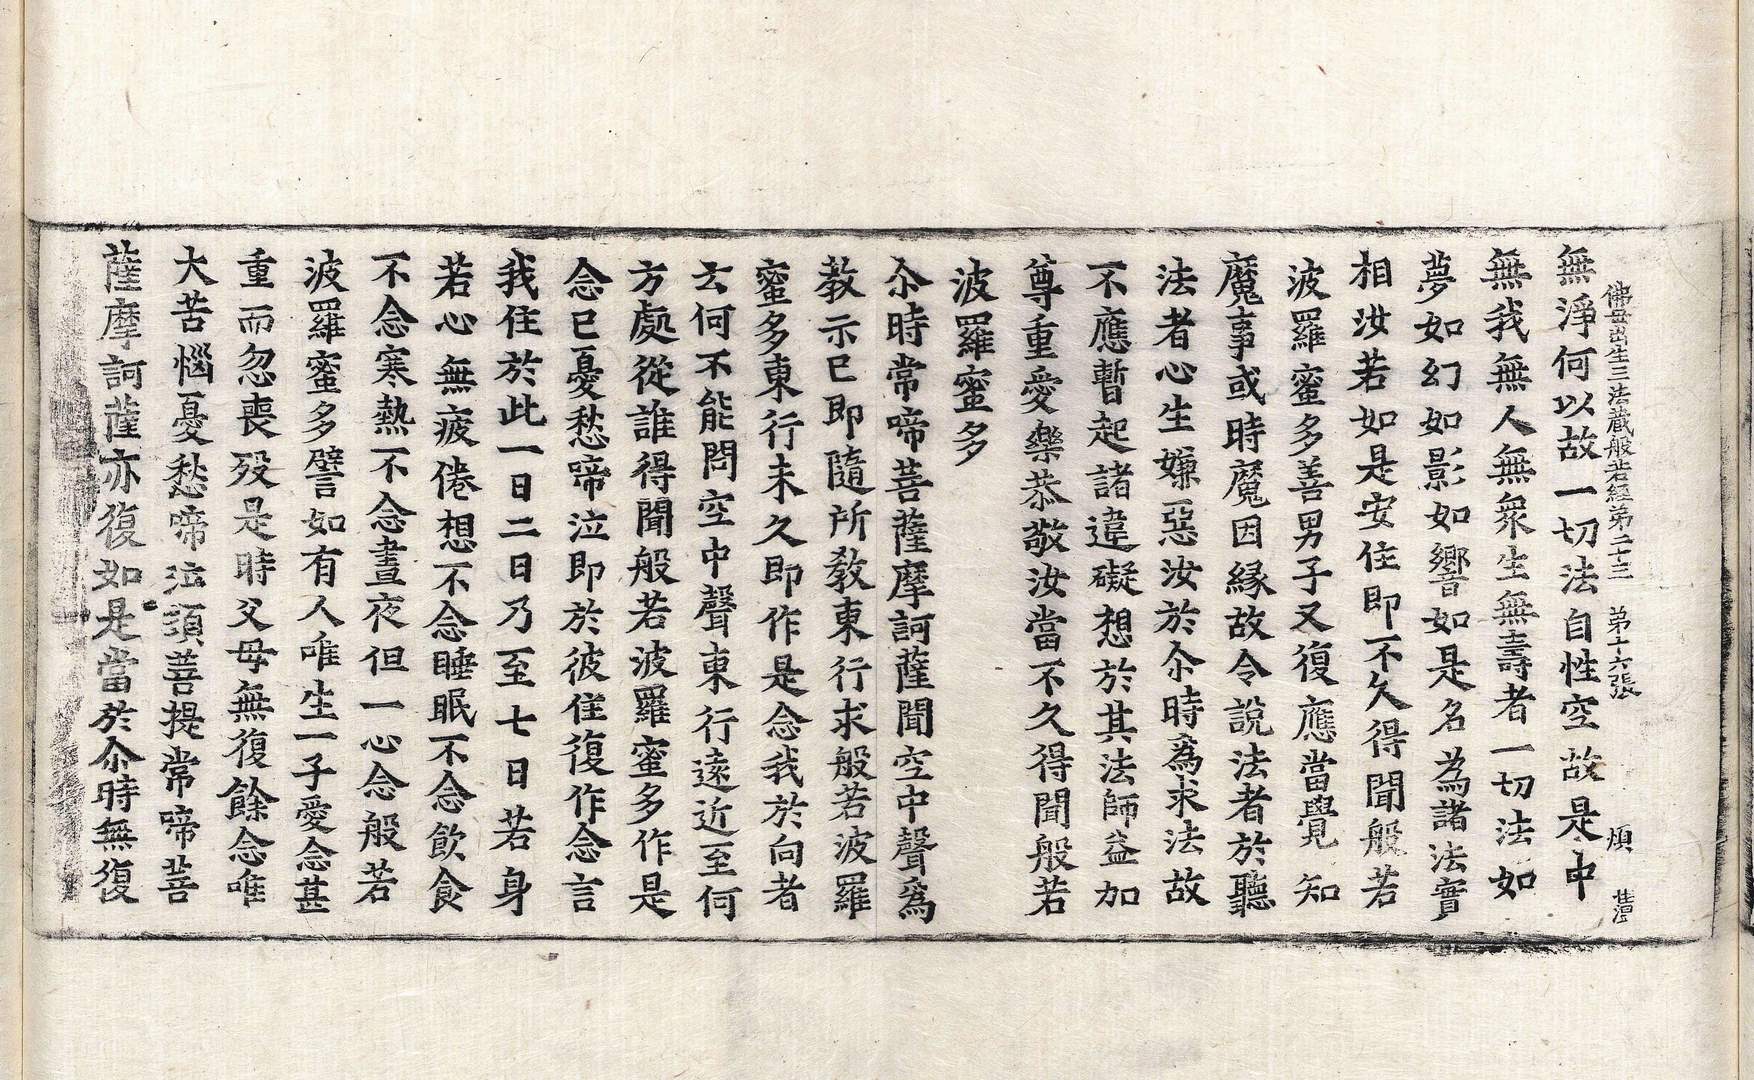 佛母出生三法藏般若經第二十三 第十六張 煩
無淨何以故一切法自性空故是中
無我無人無衆生無壽者一切法如
夢如幻如影如響如是名為諸法實
相汝若如是安住即不久得聞般若
波羅蜜多善男子又復應當覺知
魔事或時魔因緣故令說法者於聽
法者心生嫌惡汝於尒時為求法故
不應暫起諸違礙想於其法師益加
尊重愛樂恭敬汝當不久得聞般若
波羅蜜多
尒時常啼菩薩摩訶薩聞空中聲為
教示已即隨所教東行求般若波羅
蜜多東行未久即作是念我於向者
云何不能問空中聲東行遠近至何
方處從誰得聞般若波羅蜜多作是
念已憂愁啼泣即於彼住復作念言
我住於此一日二日乃至七日若身
若心無疲倦想不念睡眠不念飲食
不念寒熱不念晝夜但一心念般若
波羅蜜多譬如有人唯生一子愛念甚
重而忽喪歿是時父母無復餘念唯
大苦惱憂愁啼泣須菩提常啼菩
薩摩訶薩亦復如是當於尒時無復